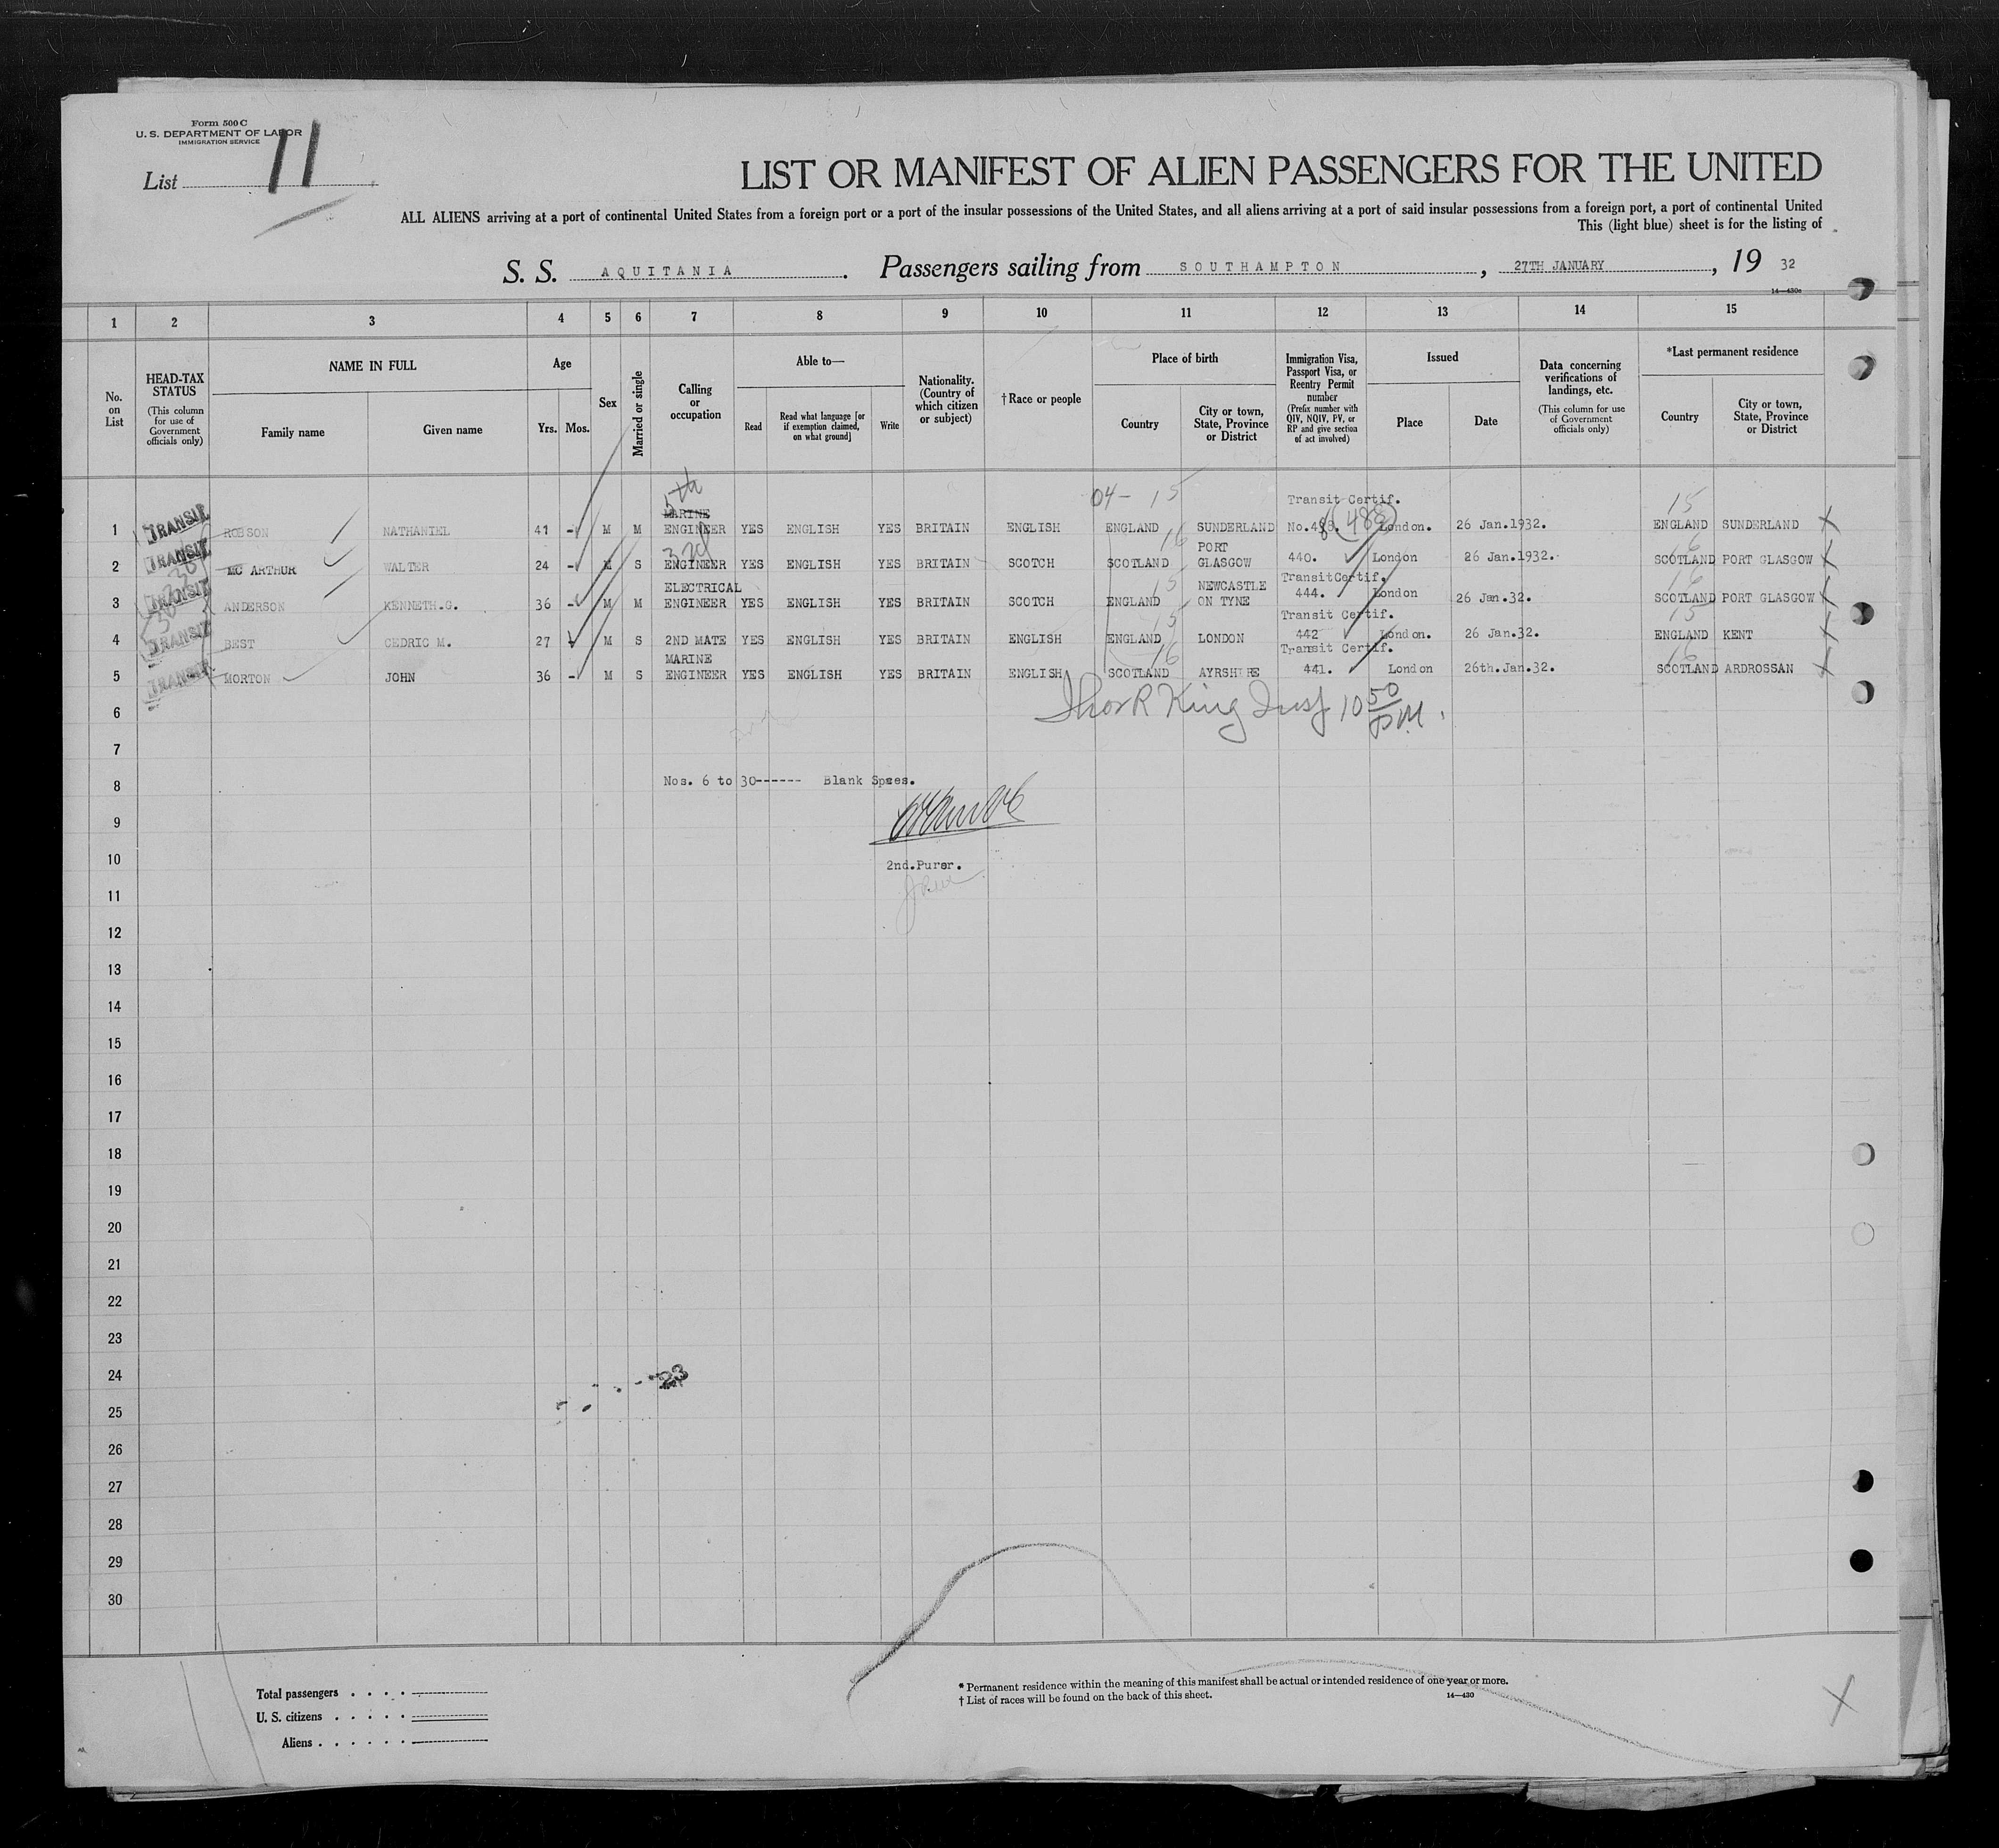 Form 500 C
U. S. DEPARTMENT OF LABOR
IMMIGRATION SERVICE
List 11
LIST OR MANIFEST OF ALIEN PASSENGERS FOR THE UNITED
ALL ALIENS arriving at a port of continental United States from a foreign port or a port of the insular possessions of the United States, and all aliens arriving at a port of said insular possessions from a foreign port, a port of continental United
This (light blue) sheet is for the listing of
S. S. AQUITANIA. Passengers sailing from SOUTHAMPTON, 27TH JANUARY, 19 32
14—430e
1 2 3 4 5 6 7 8 9 10 11 12 13 14 15
No. on List
HEAD-TAX STATUS
(This column for use of Government officials only)
NAME IN FULL
Family name Given name
Age
Yrs. Mos.
Sex
Married or single
Calling or occupation
Able to—
Read
Read what language [or if exemption claimed, on what ground]
Write
Nationality. (Country of which citizen or subject)
†Race or people
Place of birth
Country
City or town, State, Province or District
Immigration Visa, Passport Visa, or Reentry Permit number
(Prefix number with QIV, NQIV, PV, or RP and give section of act involved)
Issued
Place Date
Data concerning verifications of landings, etc.
(This column for use of Government officials only)
*Last permanent residence
Country
City or town, State, Province or District
5th 04- 15 Transit Certif. 15
MARINE
1 TRANSIT ROBSON NATHANIEL 41 - M M ENGINEER YES ENGLISH YES BRITAIN ENGLISH ENGLAND SUNDERLAND No. (488) London. 26 Jan.1932. ENGLAND SUNDERLAND
3rd 16 PORT 16
2 TRANSIT MC ARTHUR WALTER 24 - M S ENGINEER YES ENGLISH YES BRITAIN SCOTCH SCOTLAND GLASGOW 440. London 26 Jan.1932. SCOTLAND PORT GLASGOW
ELECTRICAL 15 NEWCASTLE TransitCertif. 16
3 TRANSIT ANDERSON KENNETH.G. 36 - M M ENGINEER YES ENGLISH YES BRITAIN SCOTCH ENGLAND ON TYNE 444. London 26 Jan.32. SCOTLAND PORT GLASGOW
15 Transit Certif. 15
4 TRANSIT BEST CEDRIC M. 27 - M S 2ND MATE YES ENGLISH YES BRITAIN ENGLISH ENGLAND LONDON 442 London. 26 Jan.32. ENGLAND KENT
MARINE 16 Transit Certif. 16
5 TRANSIT MORTON JOHN 36 - M S ENGINEER YES ENGLISH YES BRITAIN ENGLISH SCOTLAND AYRSHIRE 441. London 26th.Jan.32. SCOTLAND ARDROSSAN
6 King Insp 10 50 PM.
7
8 Nos. 6 to 30------ Blank Spaes.
9
10 2nd.Purer.
11
12
13
14
15
16
17
18
19
20
21
22
23
24 23
25
26
27
28
29
30
Total passengers . . . .
U. S. citizens . . . . .
Aliens . . . . . .
* Permanent residence within the meaning of this manifest shall be actual or intended residence of one year or more.
† List of races will be found on the back of this sheet.
14—430